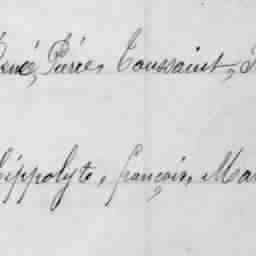 René, Pierre, Toussaint,
hippolyte, françois, Ma